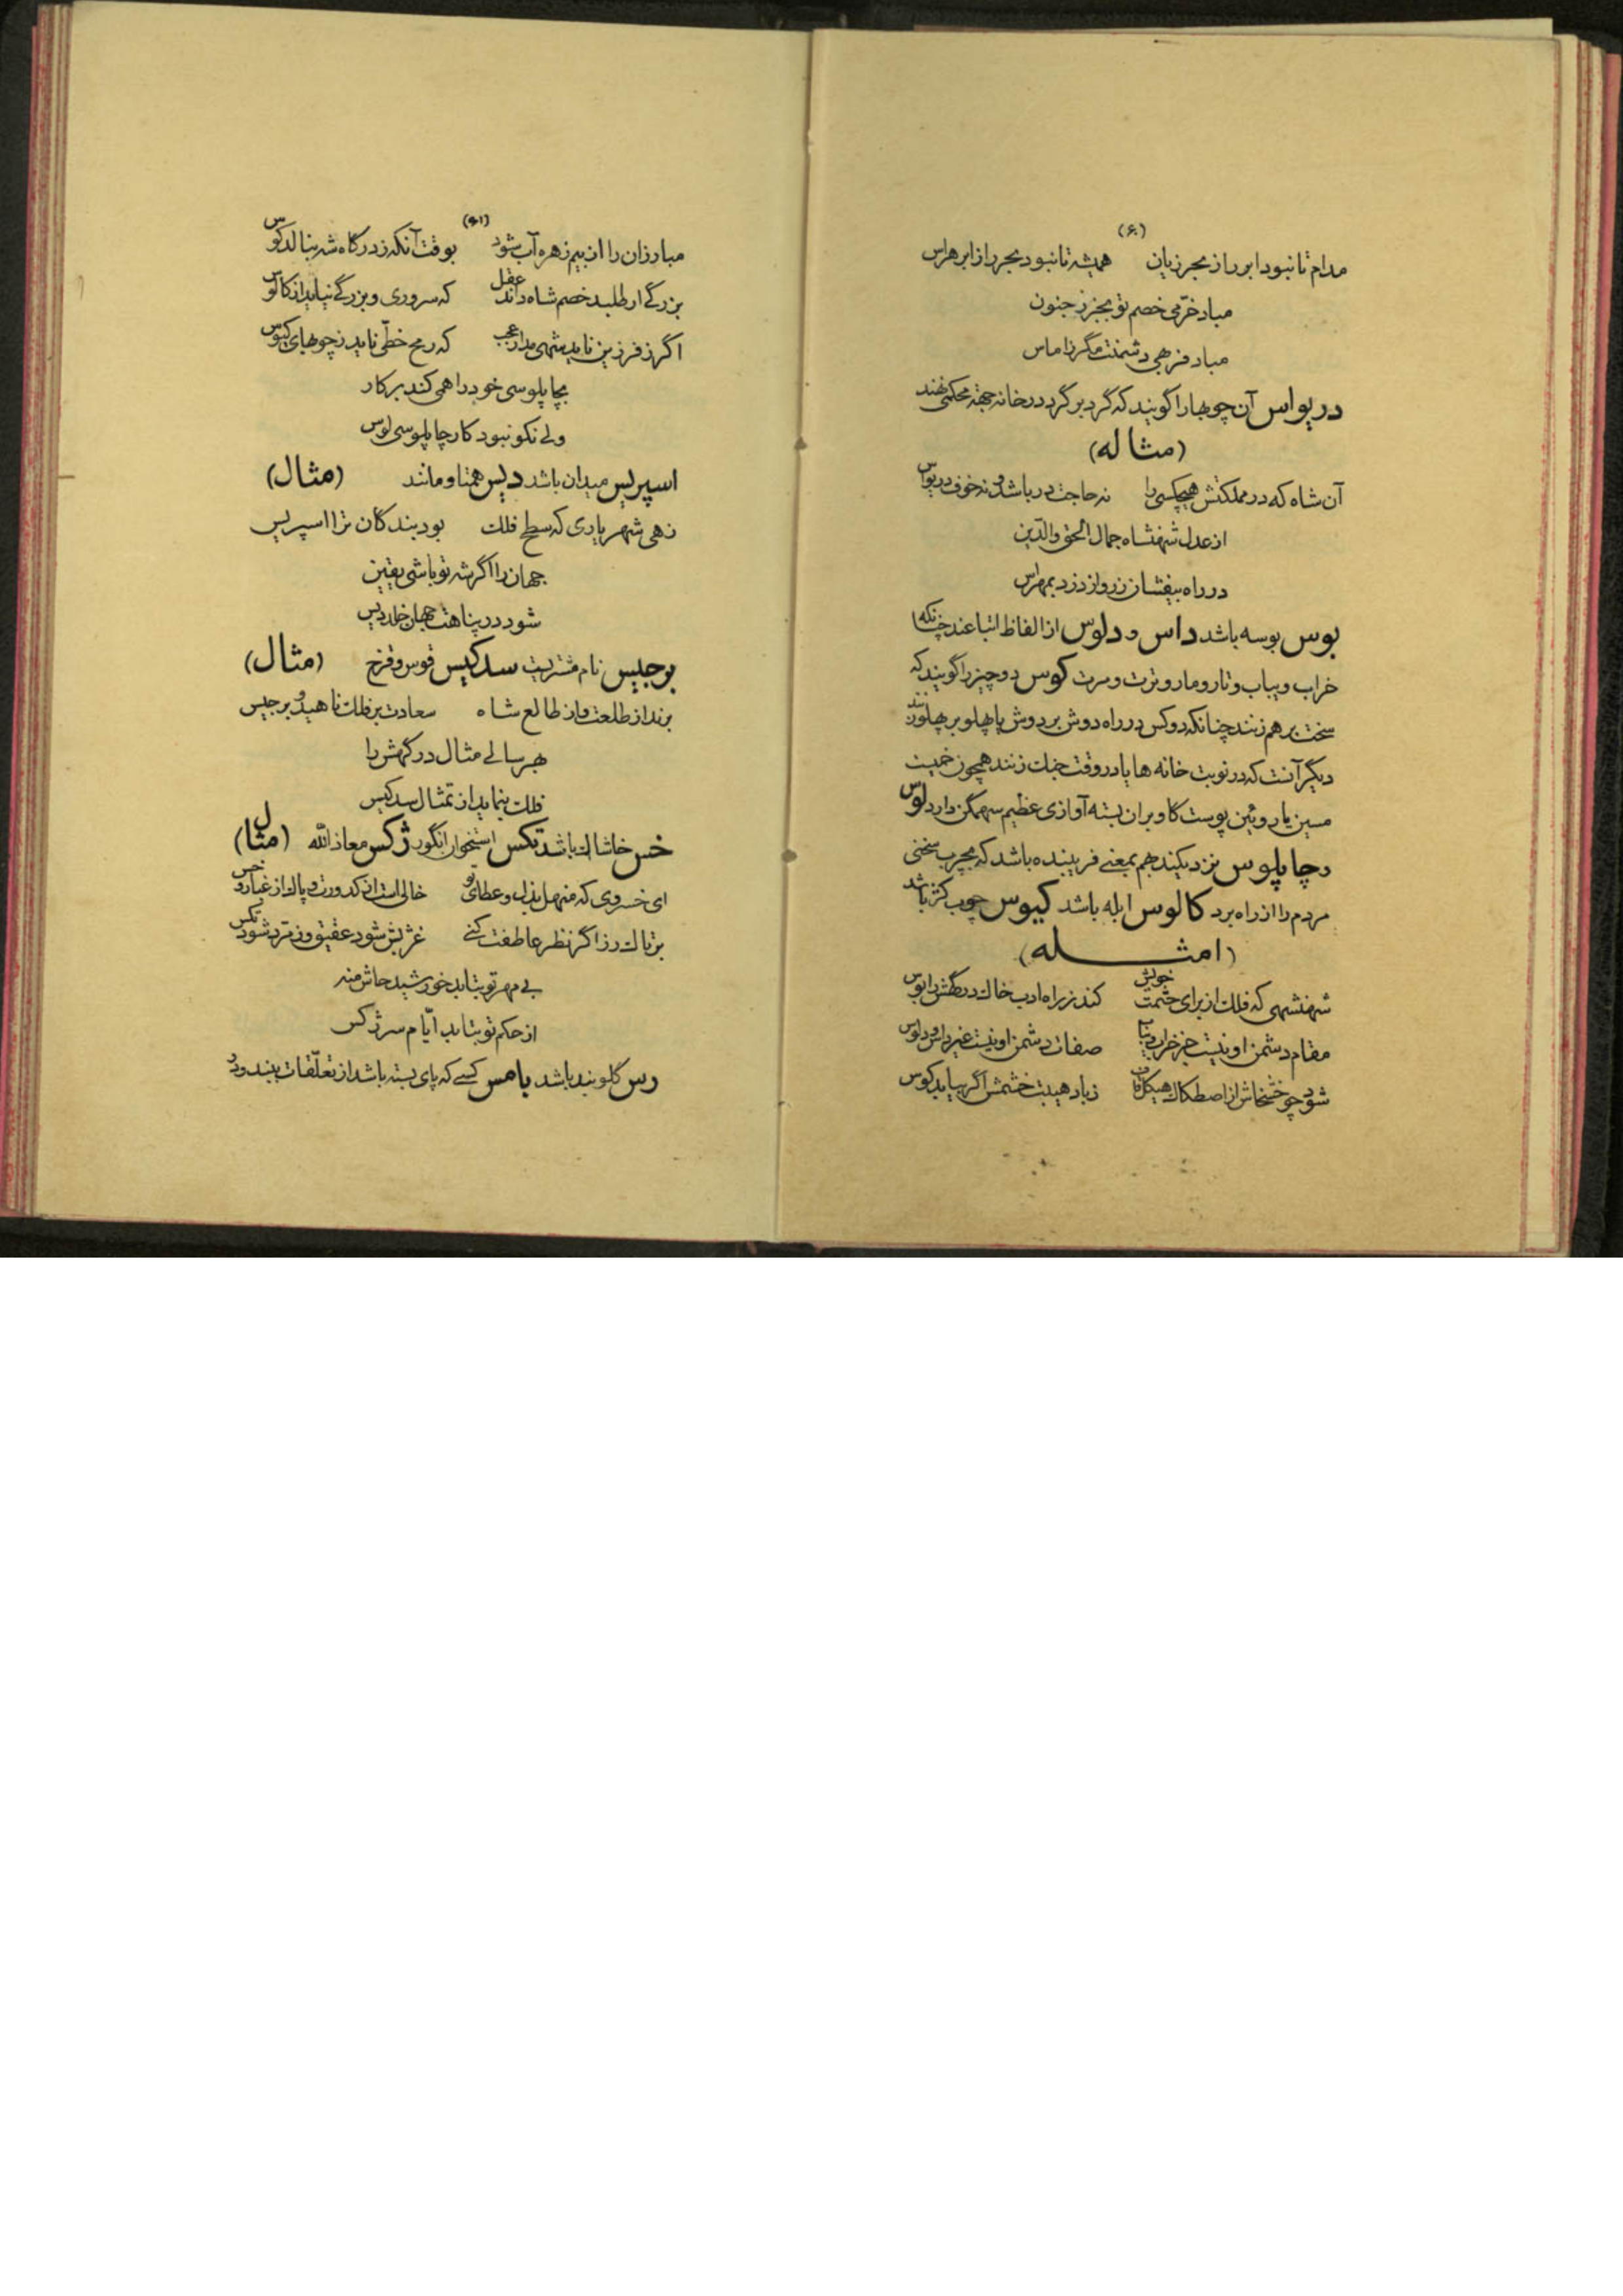 (۶۰)
مدام تا نبود ابر را ز بحر زیان همیشه تا نبود بحر را ز ابر هراس
مباد خرّمی خصم تو بجز ز جنون
مباد فربهی دشمنت مگر ز اماس
دریواس آن چوبها را گویند که گرد بر گرد در خانه جهة محکمی نهند
(مثاله)
آن شاه که در مملکتش هیچکسی را نه حاجت در باشد و نه خوف دریواس
از عدل شهنشاه جمال الحق والدّین
در راه بیفشان زر و از دزد بمهراس
بوس بوسه باشد داس و دلوس از الفاظ اتباعند چنانکه
خراب و یباب و تار و مار و ترت و مرت کوس دو چیز را گویند که
سخت بر هم زنند چنانکه دو کس در راه دوش بر دوش یا پهلو بر پهلو زنند
دیگر آنست که در نوبت خانه ها یا در وقت جنك زنند همچون خمیست
مسین یا روئین پوست گاو بران بسته آوازی عظیم سهمگن دارد لوس
و چاپلوس نزدیکند هم بمعنے فریبنده باشد که بچرب سخنی
مردم را از راه برد کالوس ابله باشد کیوس چوب کژ باشد
(امثله)
شهنشهی که فلك از برای حشمت خویش کند ز راه ادب خاك درگهش را بوس
مقام دشمن او نیست جز خراب و یباب صفات دشمن او نیست غیر داس و دلوس
شود چو خشخاش از اصطکاك هیکل قاف ز باد هیبت خشمش اگر بیابد کوس
(۶۱)
مبارزان را از بیم زهره آب شود بوقت آنکه ز درگاه شه بنالد کوس
بزرگے ار طلبد خصم شاه داند عقل که سروری و بزرگے نیاید از کالوس
اگر ز فرزین ناید شهی مدار عجب که رمح خطّی ناید ز چوبهای کیوس
بچاپلوسی خود را همی کند بر کار
ولے نکو نبود کار چاپلوسی لوس
اسپریس میدان باشد دیس همتا و مانند (مثال)
زهی شهریاری که سطح فلك بود بندگان ترا اسپریس
جهان را اگر شه تو باشی یقین
شود در پناهت جهان خلد دیس
برجیس نام مشتریست سدکیس قوس و قزح (مثال)
برند از طلعت و از طالع شاه سعادت بر فلك ناهید و برجیس
بهر سالے مثال درگهش را
فلك بنماید از تمثال سدکیس
خس خاشاك باشد تکس استخوان انگور ژکس معاذ الله (مثال)
ای خسروی که منهل بذل و عطای تو خالی است از کدورت و پاك از غبار و خس
بر تاك رز اگر نظر عاطفت کنے غژبش شود عقیق و زمرد شود تکس
بے مهر تو بتابد خورشید حاش منه
از حکم تو بتابد ایّام سر ژکس
رس گلوبند باشد پامس کسے که پای بسته باشد از تعلّقات بند و درد